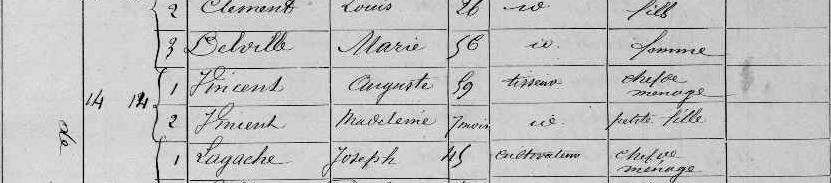 2 Clement Louis 26 id fils
3 Delville Marie 56 id. femme
14 14 1 Vincent Auguste 59 tisseur chef de ménage
2 Vincent Madeleine 7 mois id. petite fille
1 Lagache Joseph 45 cultivateur chef de ménage
de